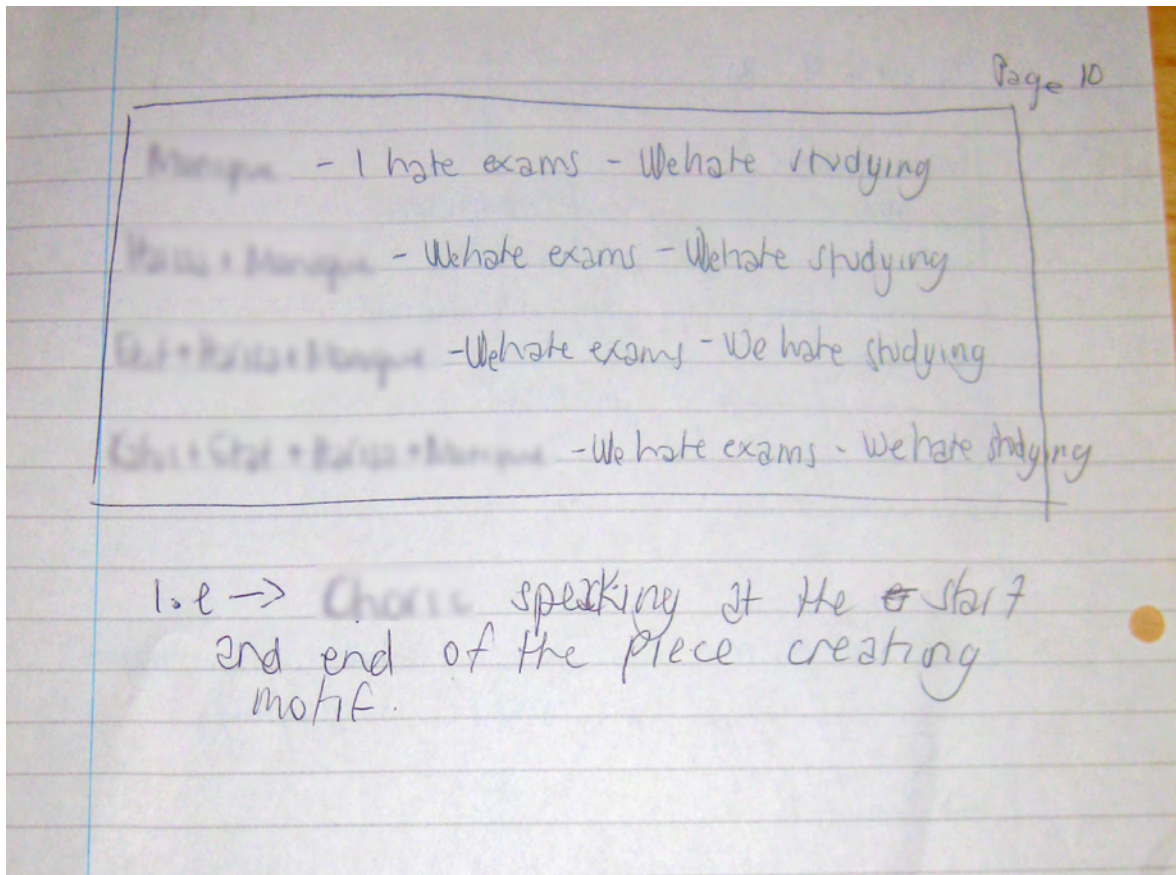 Page 10
- I hate exams - We hate studying
- We hate exams - We hate studying
- We hate exams - We hate studying
- We hate exams - We hate studying
i.e → speaking at the start
and end of the piece creating
motif.